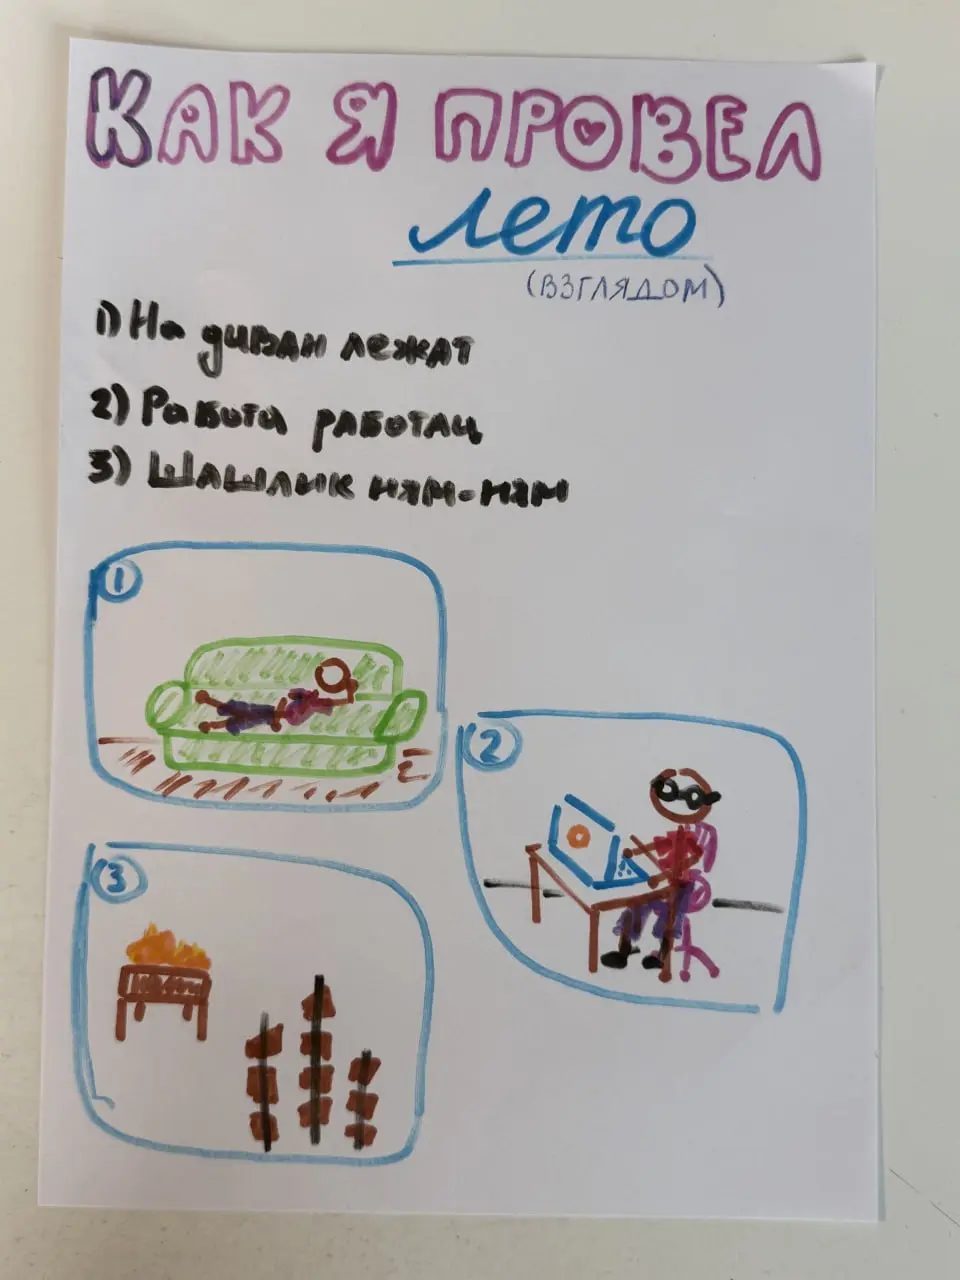 КАК Я ПРОВЕЛ
лето
(ВЗГЛЯДОМ)
1) На диван лежат
2) Работа работац
3) Шашлик ням-ням
1
2
3